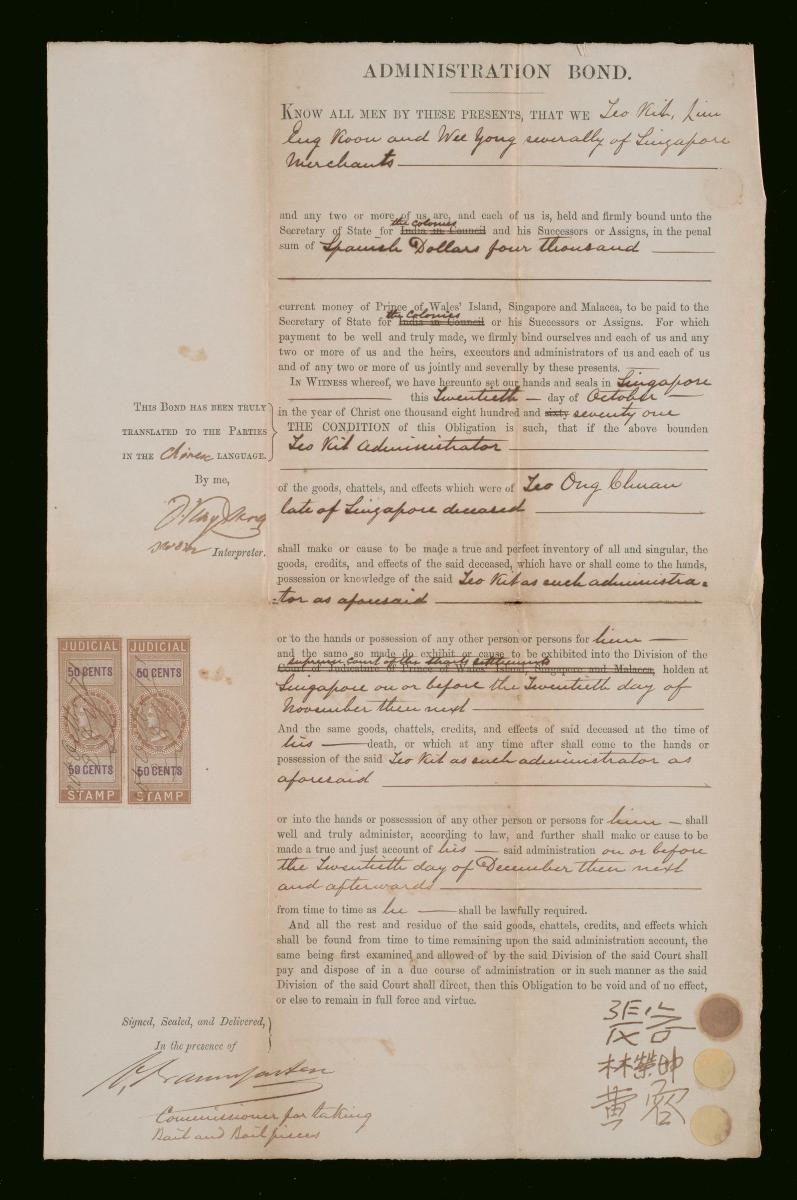 ADMINISTRATION BOND.
KNOW ALL MEN BY THESE PRESENTS, THAT WE Teo Kit, Lim
Eng Koon and Wee Yong severally of Singapore
Merchants
and any two or more of us are, and each of us is, held and firmly bound unto the
the colonies
Secretary of State for India in Council and his Successors or Assigns, in the penal
sum of Spanish Dollars four thousand
current money of Prince of Wales' Island, Singapore and Malacca, to be paid to the
the colonies
Secretary of State for India in Council or his Successors or Assigns. For which
payment to be well and truly made, we firmly bind ourselves and each of us and any
two or more of us and the heirs, executors and administrators of us and each of us
and of any two or more of us jointly and severally by these presents.
IN WITNESS whereof, we have hereunto set our hands and seals in Singapore
this Twentieth day of October
in the year of Christ one thousand eight hundred and sixty seventy one
THE CONDITION of this Obligation is such, that if the above bounden
Teo Kit Administrator
of the goods, chattels, and effects which were of Teo Ong Chuan
late of Singapore deceased
shall make or cause to be made a true and perfect inventory of all and singular, the
goods, credits, and effects of the said deceased, which have or shall come to the hands,
possession or knowledge of the said Teo Kit as such administra-
-tor as aforesaid
or to the hands or possession of any other person or persons for him
and the same so made do exhibit or cause to be exhibited into the Division of the
supreme court of the Straits settlements
Court of Judicature of Prince of Wales' Island, Singapore and Malacca, holden at
Singapore on or before the Twentieth day of
November then next
And the same goods, chattels, credits, and effects of said deceased at the time of
his death, or which at any time after shall come to the hands or
possession of the said Teo Kit as such administrator as
aforesaid
or into the hands or possesssion of any other person or persons for him shall
well and truly administer, according to law, and further shall make or cause to be
made a true and just account of his said administration on or before
the Twentieth day of December then next
and afterwards
from time to time as he shall be lawfully required.
And all the rest and residue of the said goods, chattels, credits, and effects which
shall be found from time to time remaining upon the said administration account, the
same being first examined and allowed of by the said Division of the said Court shall
pay and dispose of in a due course of administration or in such manner as the said
Division of the said Court shall direct, then this Obligation to be void and of no effect,
or else to remain in full force and virtue.
THIS BOND HAS BEEN TRULY
TRANSLATED TO THE PARTIES
IN THE Chinese LANGUAGE.
By me,
sworn Interpreter.
JUDICIAL
50 CENTS
50 CENTS
STAMP
JUDICIAL
50 CENTS
50 CENTS
STAMP
Signed, Sealed, and Delivered,
In the presence of
Commissioner for taking
Bail and Bail pieces
林榮
黄容